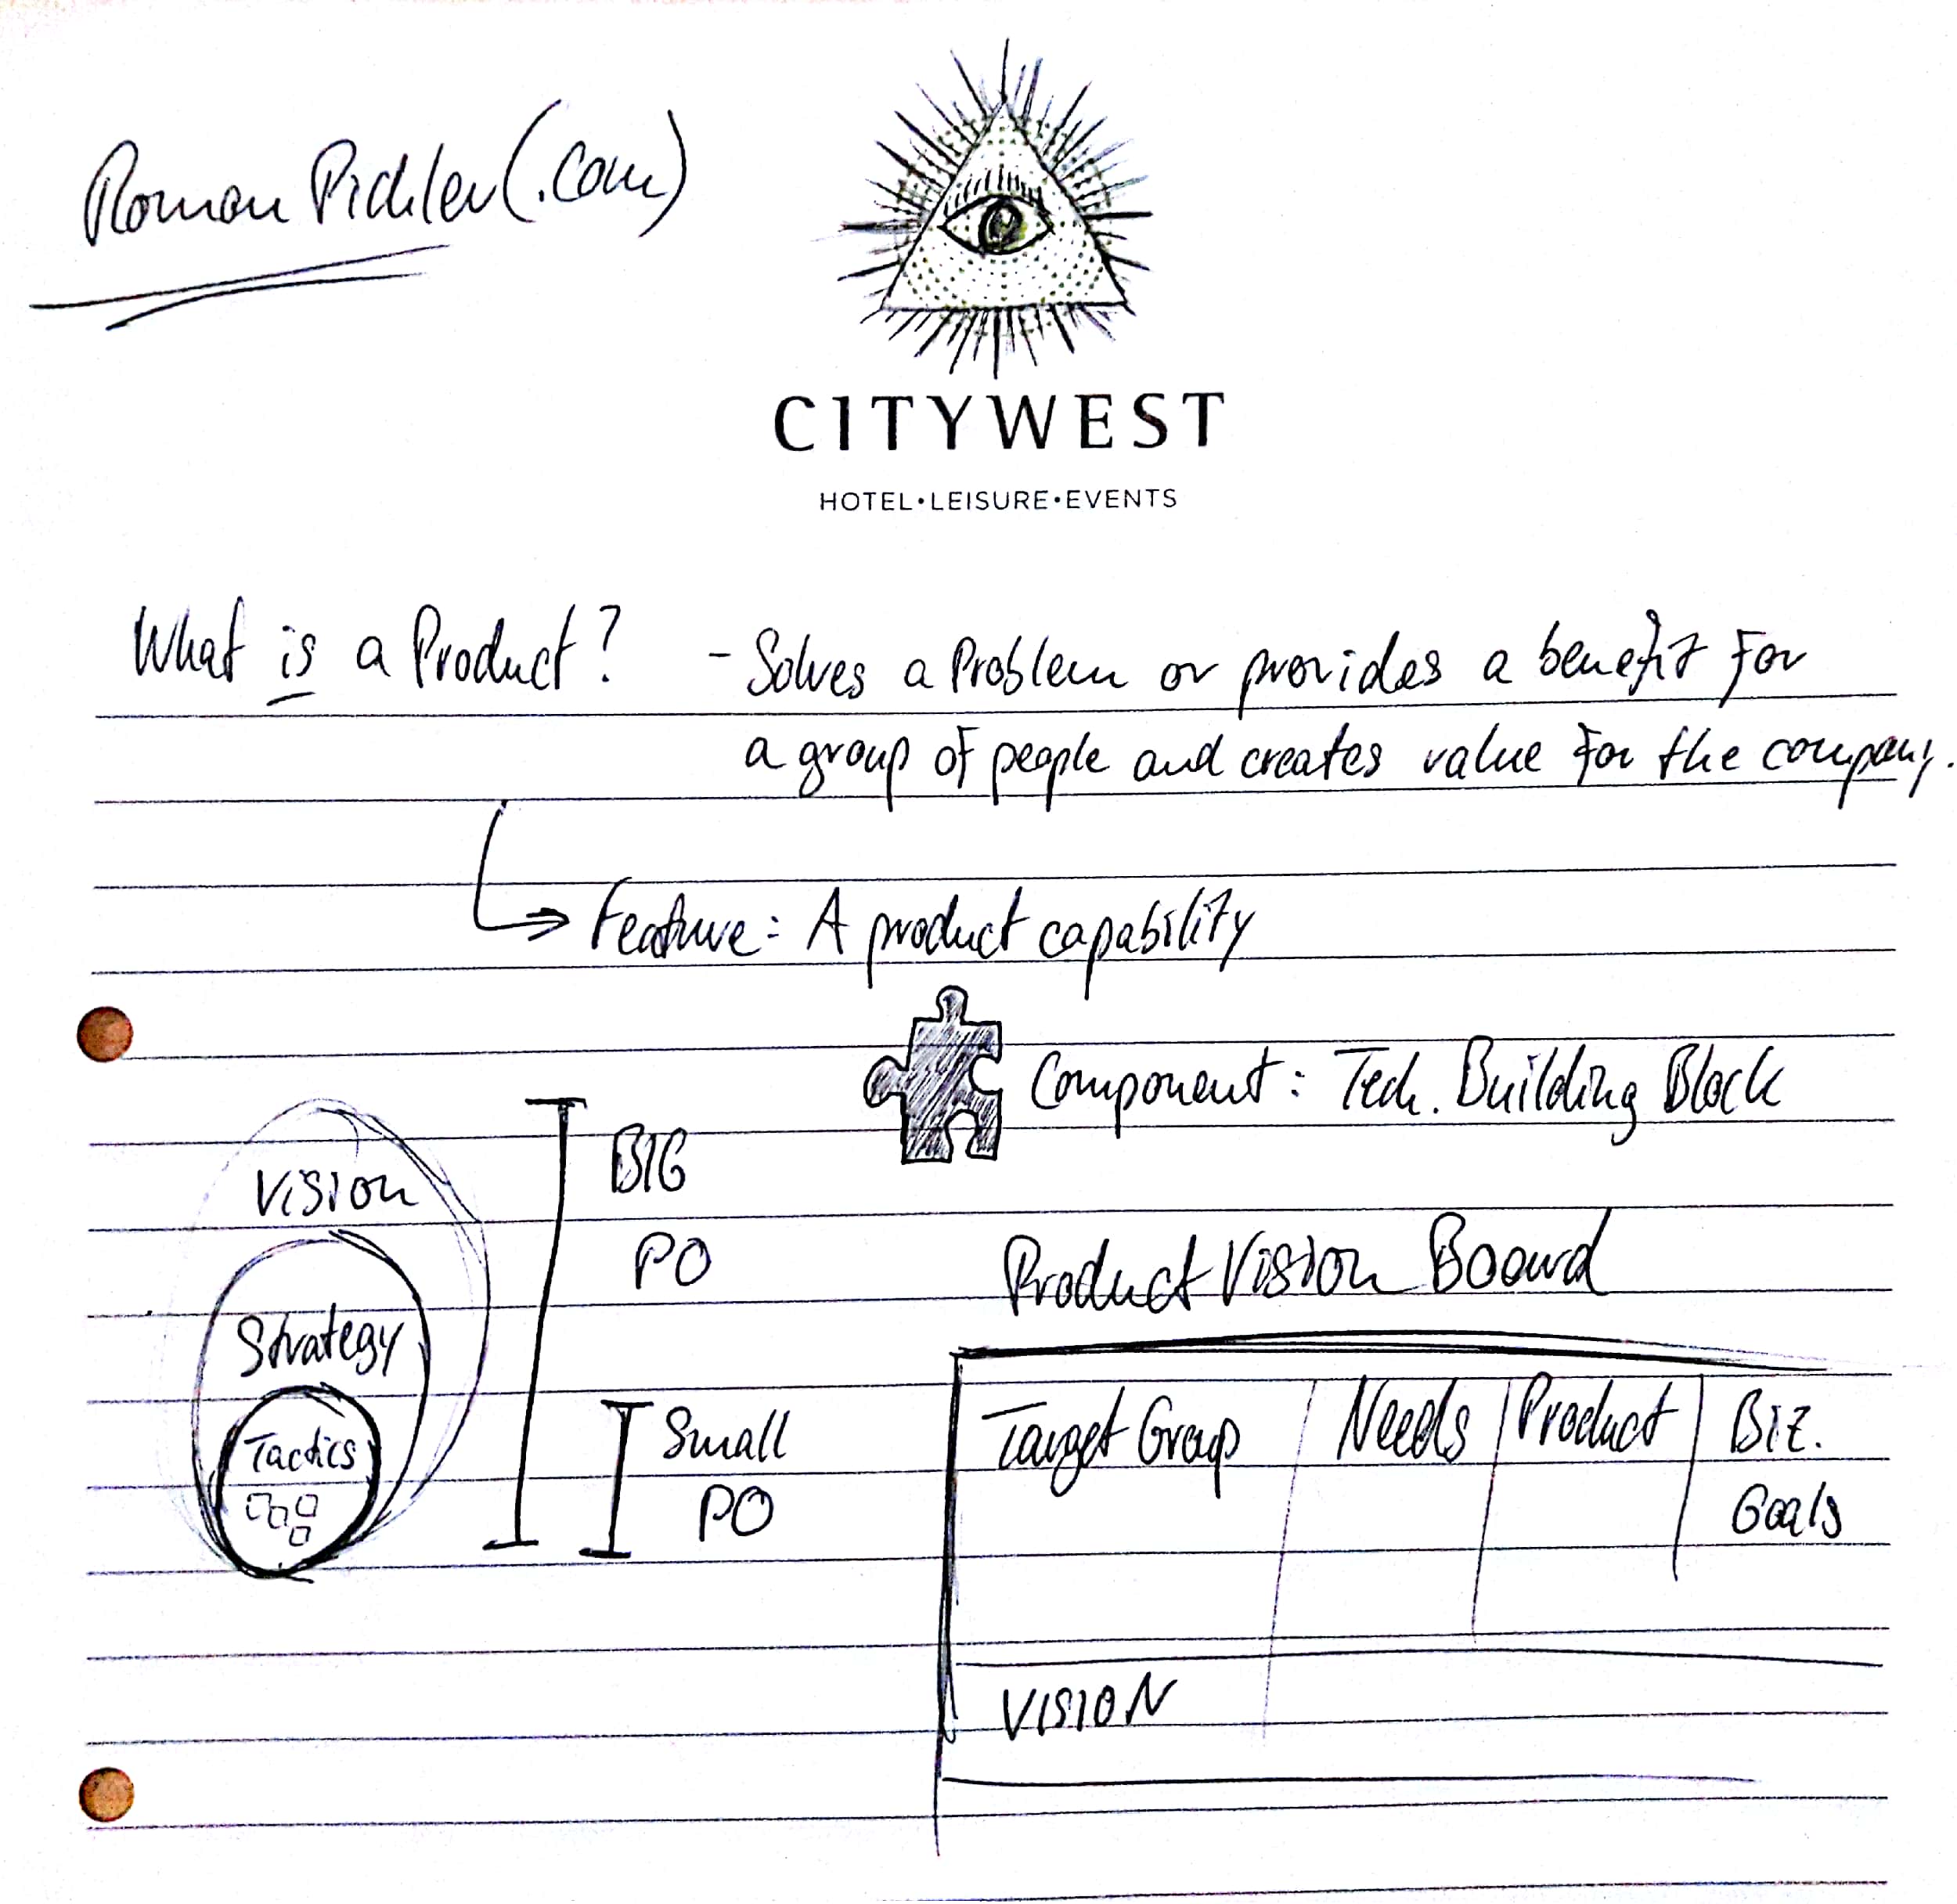 Roman Pichler (.com)
CITYWEST
HOTEL•LEISURE•EVENTS
What is a Product? - Solves a Problem or provides a benefit for
a group of people and creates value for the company.
Feature: A product capability
Component: Tech. Building Block
Vision
Strategy
Tactics
BIG
PO
Small
PO
Product Vision Board
Target Group Needs Product Biz.
Goals
VISION